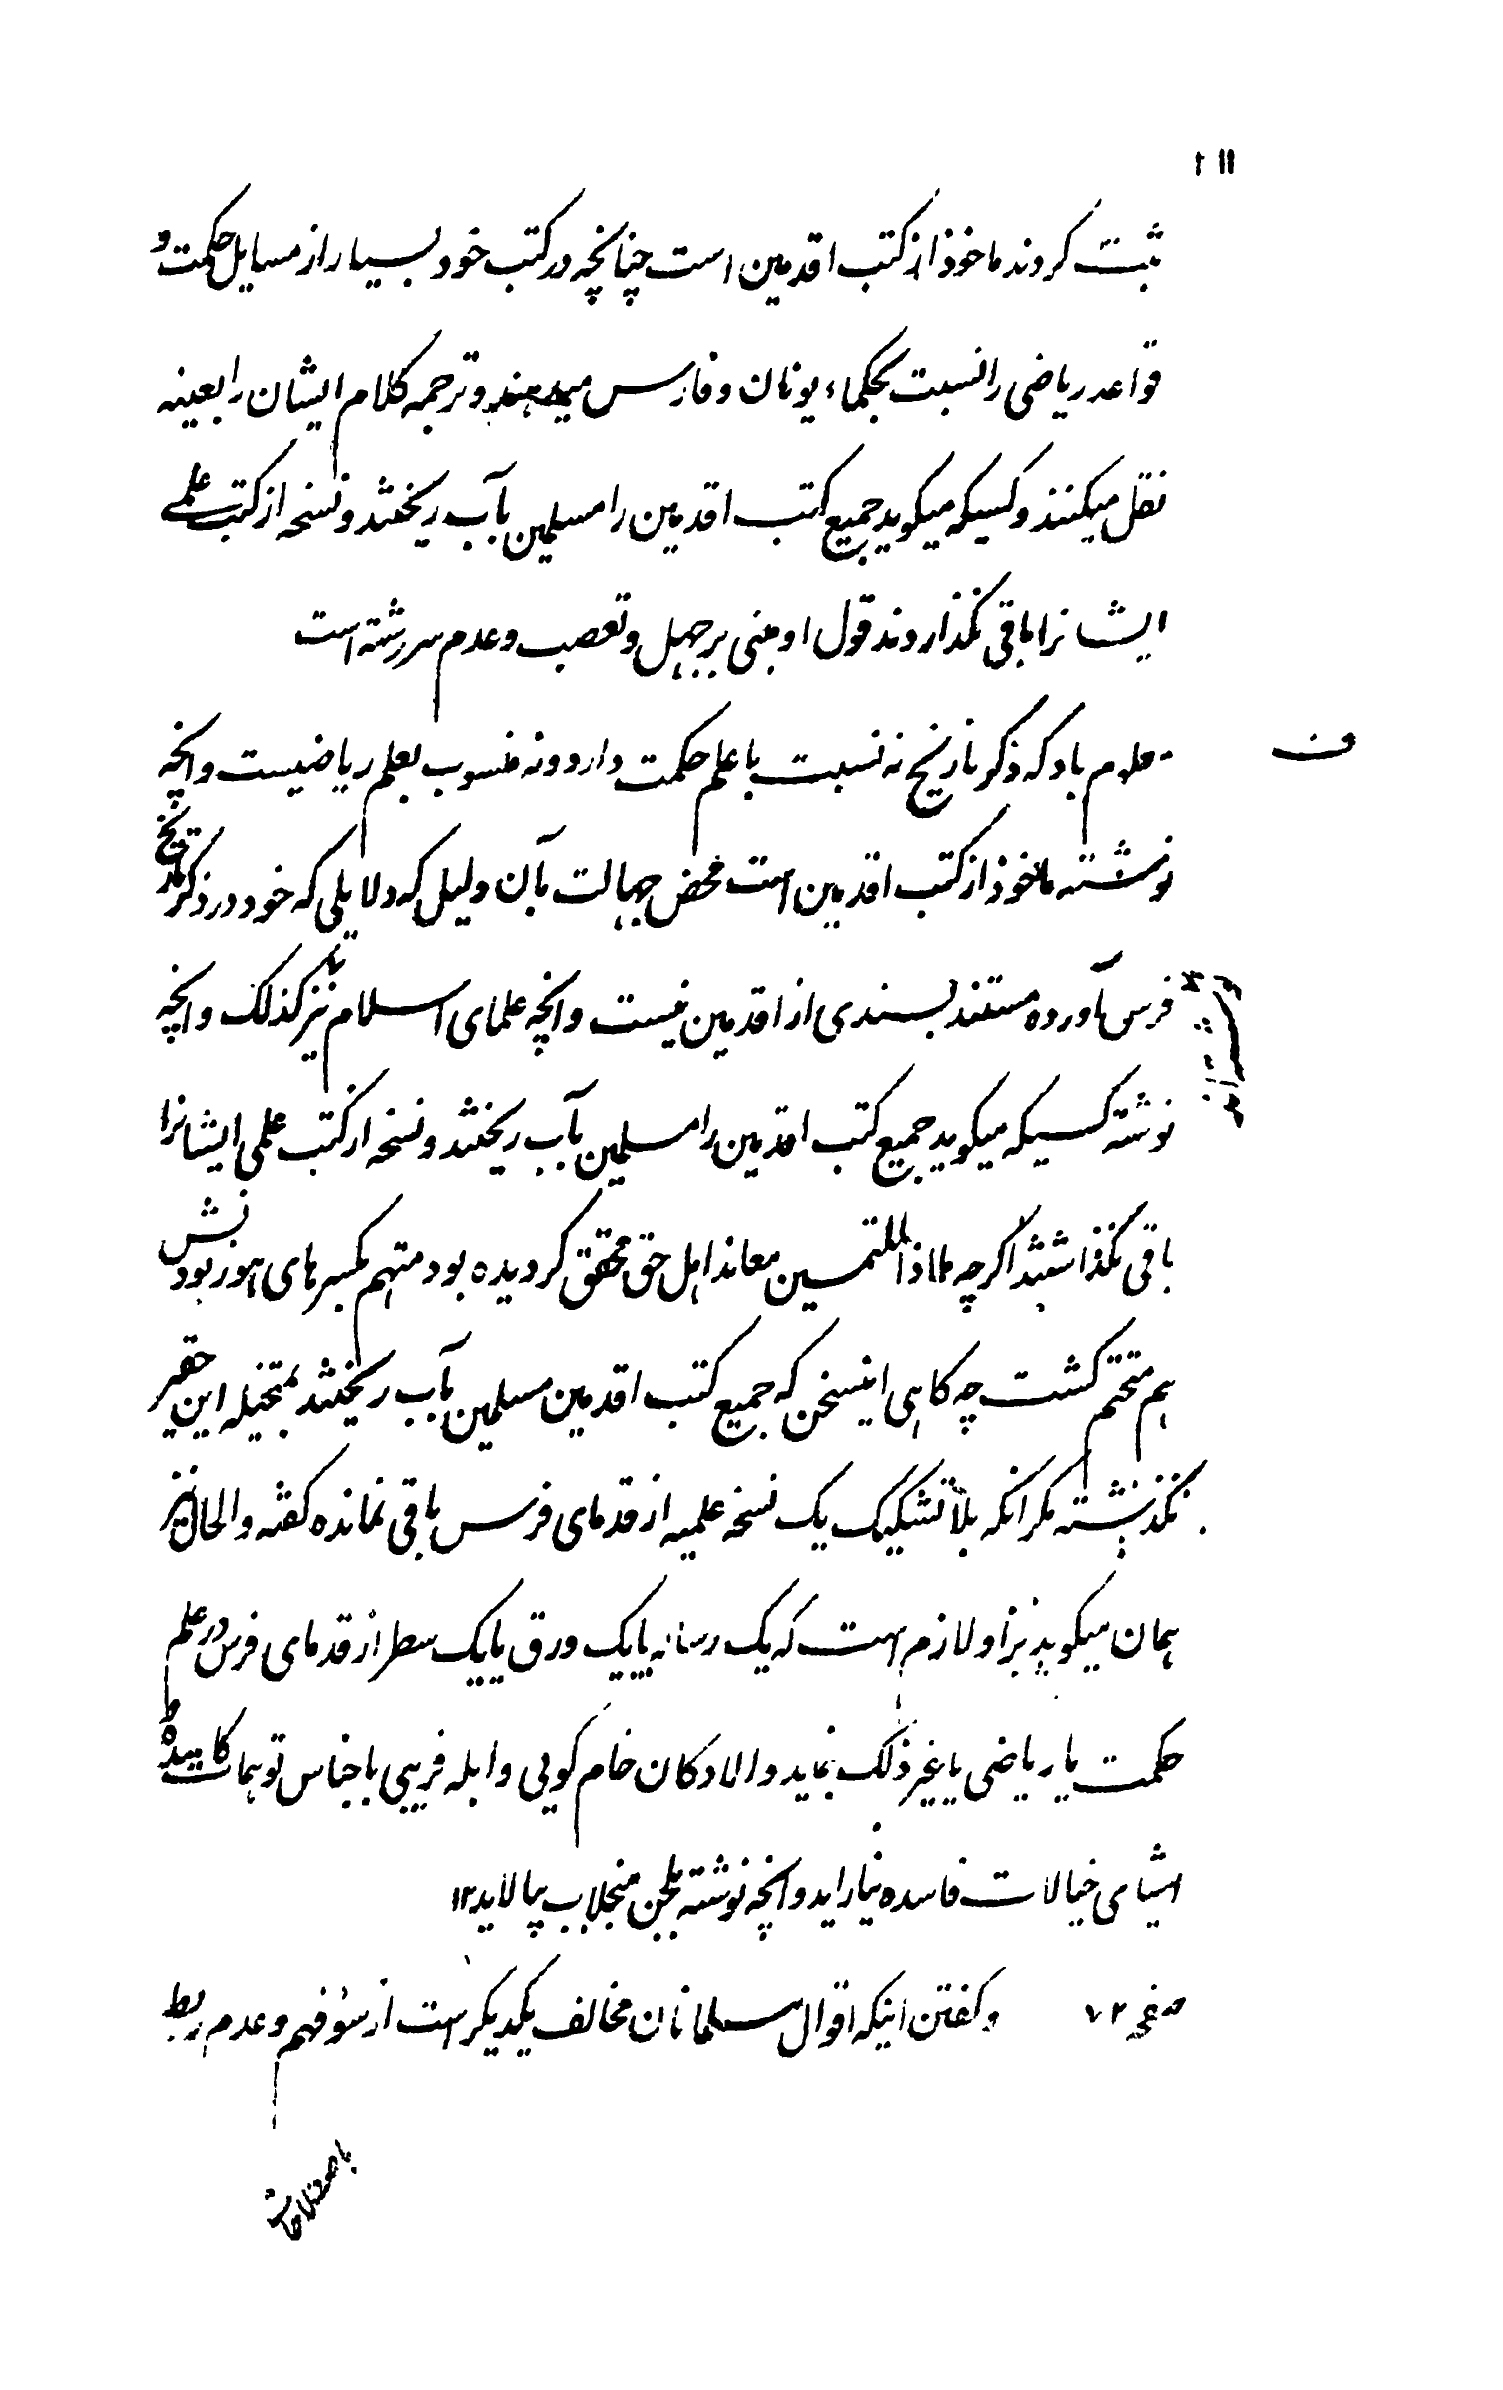 ۱۱۱
ثبت کردند ماخوذ از کتب اقدمین است چنانچه در کتب خود بسیار از مسایل حکمت و
قواعد ریاضی را نسبت بحکماء یونان و فارس میدهند و ترجمه کلام ایشان را بعینه
نقل میکنند و کسیکه میکوید جمیع کتب اقدمین را مسلمین بآب ریختند و نسخه از کتب علمی
ایشانرا باقی نکذاردند قول او مبنی بر جهل و تعصب و عدم سررشته است
ف معلوم باد که ذکر تاریخ نه نسبت با علم حکمت دارد و نه منسوب بعلم ریاضیست و انچه
نوشته ماخوذ از کتب اقدمین است محض جهالت بآن دلیل که دلایلی که خود در ذکر تاریخ
فرس آورده مستند بسندی از اقدمین نیست و انچه علمای اسلام نیز کذلک و انچه
نوشته کسیکه میکوید جمیع کتب اقدمین را مسلمین بآب ریختند و نسخه از کتب علمی ایشانرا
باقی نکذاشتند اکرچه ملاذ الملتمسین معاند اهل حق محقق کردیده بود متهم بکسر های هوز بودنش
هم متحتم کشت چه کاهی اینسخن که جمیع کتب اقدمین مسلمین بآب ریختند بمتخیله این حقیر
نکذشته مکر انکه بلا تشکیک یک نسخه علمیه از قدمای فرس باقی نمانده کفته و الحال نیز
همان میکوید بر او لازم است که یک رساله یا یک ورق یا یک سطر از قدمای فرس در علم
حکمت یا ریاضی یا غیر ذلک بنماید و الا دکان خام کویی و ابله فریبی باجناس توهمات کاسده و
اشیای خیالات فاسده نیاراید و انچه نوشته بلجن منجلاب بیالاید ۱۲
صفحه ۷۲ و کفتن اینکه اقوال مسلمانان مخالف یکدیکر است از سوء فهم و عدم ربط